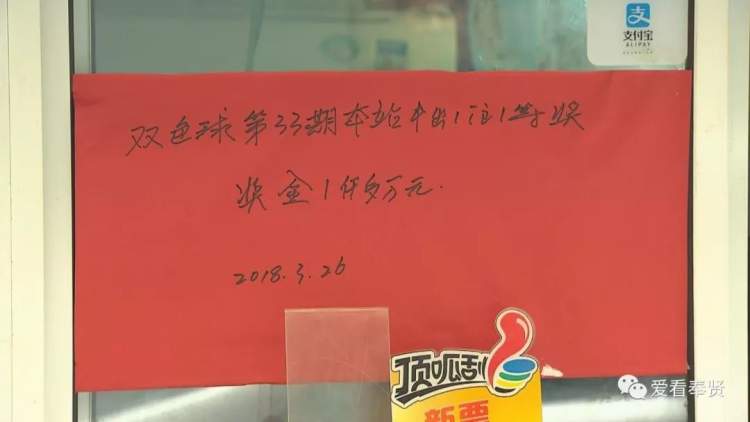 支付宝
ALIPAY
双色球第33期本站中出1注1等奖
奖金1仟多万元.
2018.3.26
顶呱刮
新票
爱看奉贤